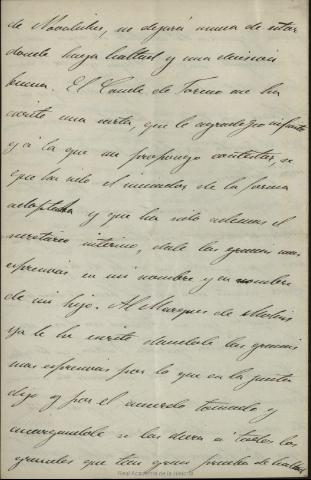 de Novaliches, no dejará nunca de estar
donde haya lealtad y una decision
buena. El Conde de Toreno me ha
escrito una carta, que le agradezco infinito
y á la que me propongo contestar, se
que ha sido el iniciador de la forma
adoptada y que ha sido ademas el
secretario interino, dale las gracias mas
espresivas en mi nombre y en nombre
de mi hijo. Al Marques de Molins
ya le he escrito dandole las gracias
mas espresivas por lo que en la junta
dijo y por el acuerdo tomado y
encargandole se las diera á todos los
grandes que tan gran prueba de lealtad
Real Academia de la Historia